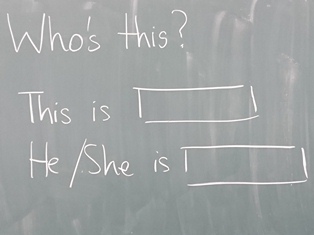 Who's this?
This is
He/She is